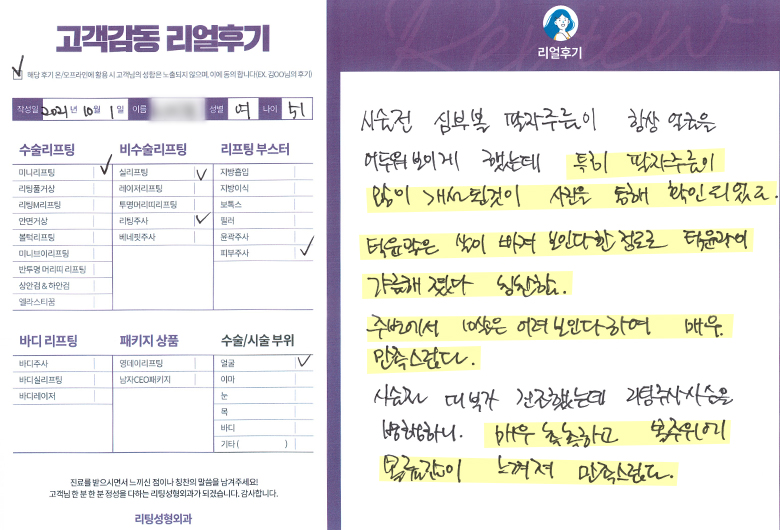 고객감동 리얼후기
해당 후기 온/오프라인에 활용 시 고객님의 성함은 노출되지 않으며, 이에 동의 합니다(EX. 김OO님의 후기)
작성일 2021년 10월 1일 이름 성별 여 나이 51
수술리프팅
미니리프팅
리팅풀거상
리팅M리프팅
안면거상
볼턱리프팅
미니브이리프팅
반투명 머리띠 리프팅
상안검 & 하안검
엘라스티꿈
비수술리프팅
실리프팅
레이저리프팅
투명머리띠리프팅
리팅주사
베네핏주사
리프팅 부스터
지방흡입
지방이식
보톡스
필러
윤곽주사
피부주사
바디 리프팅
바디주사
바디실리프팅
바디레이저
패키지 상품
영데이리프팅
남자CEO패키지
수술/시술 부위
얼굴
이마
눈
목
바디
기타 ( )
진료를 받으시면서 느끼신 점이나 칭찬의 말씀을 남겨주세요!
고객님 한 분 한 분 정성을 다하는 리팅성형외과가 되겠습니다. 감사합니다.
리팅성형외과
Review
리얼후기
시술전 심부볼 팔자주름이 항상 얼굴을
어두워 보이게 했는데 특히 팔자주름이
많이 개선된것이 사진을 통해 확인되었고.
턱윤곽은 살이 빠져 보인다 할 정도로 턱윤곽이
갸름해 졌다 칭찬함.
주변에서 10살은 어려 보인다 하여 매우
만족스럽다.
시술전 피부가 건조했는데 리팅주사 시술을
병행하니. 매우 촉촉하고 볼주위에
볼륨감이 느껴져 만족스럽다.